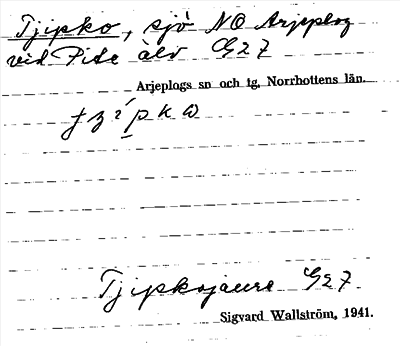 Tjipko, sjö NO Arjeplog
vid Pite älv G27
Arjeplogs sn och tg, Norrbottens län.
Tjipkojaure G27.
Sigvard Wallström, 1941.